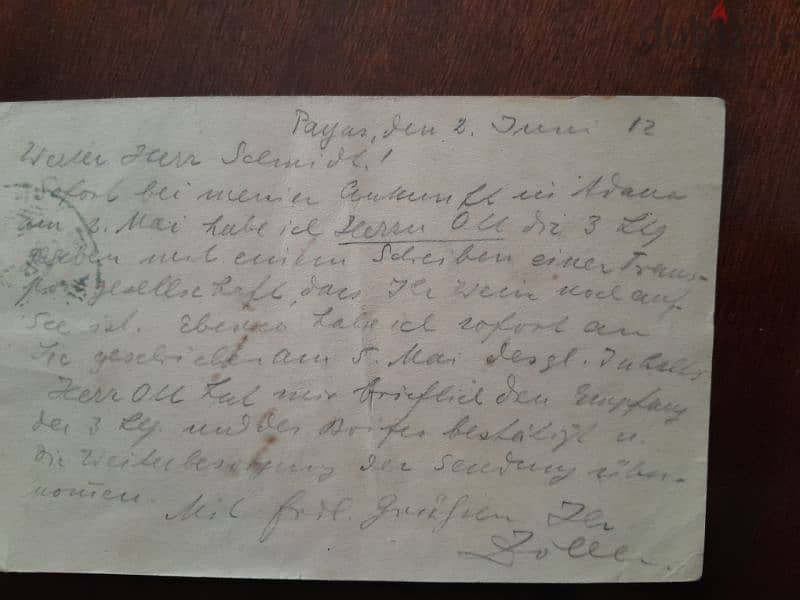 dubizzle
Payas, den 2. Juni 12
Werter Herr Schmidt!
Sofort bei meiner Ankunft in Adana
am 2. Mai habe ich Herrn Ott die 3 Ltq
gegeben mit einem Schreiben einer Trans-
portgesellschaft, dass Ihr Wein noch auf
See ist. Ebenso habe ich sofort an
Sie geschrieben am 5. Mai desgl. Inhalts
Herr Ott hat mir brieflich den Empfang
der 3 Ltq. und des Briefes bestätigt u.
die Weiterbesorgung der Sendung über-
nomen.
Mit frdl. Grüßen Ihr
Zoller.